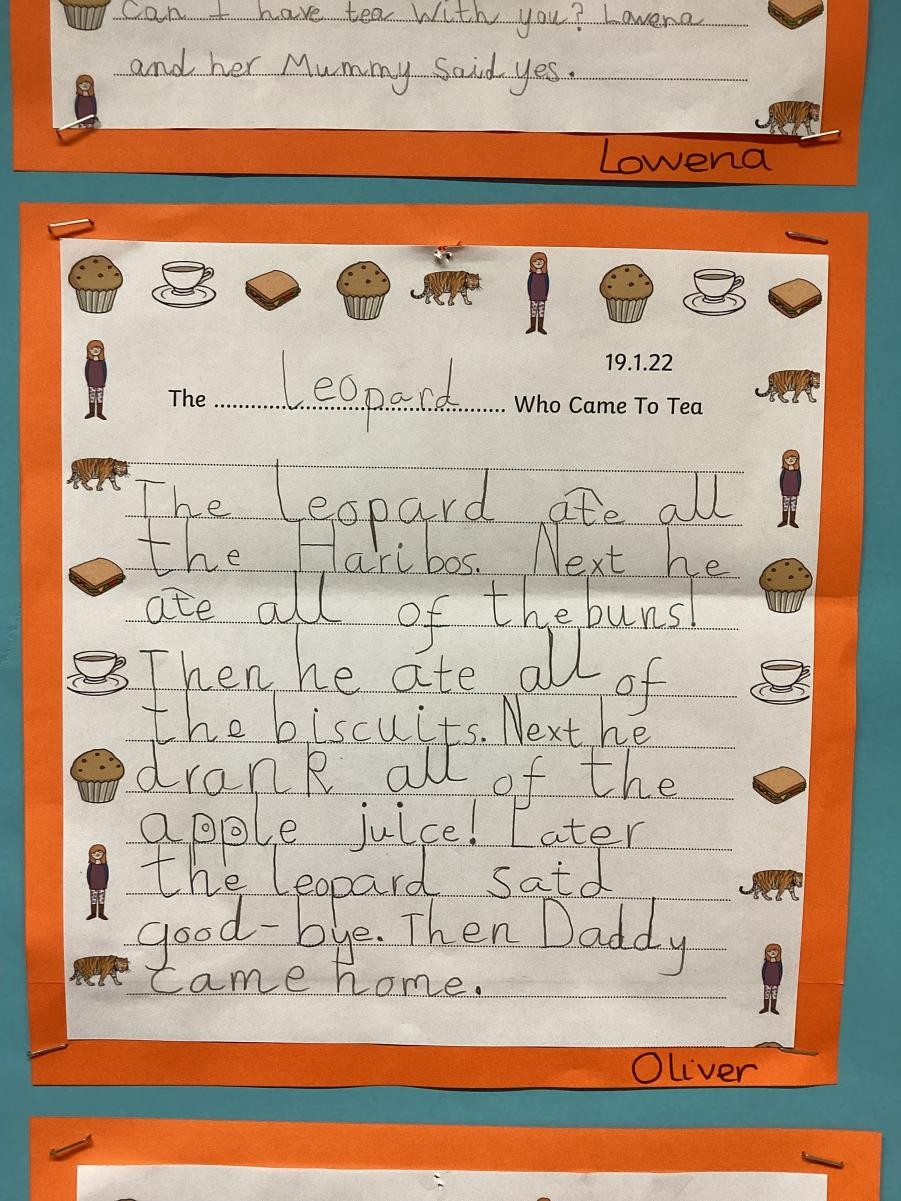 Can I have tea With you? Lowena
and her Mummy Said yes.
Lowena
19.1.22
The ........ Leopard ........ Who Came To Tea
The Leopard ate all
the Haribos. Next he
ate all of the buns!
Then he ate all of
the biscuits. Next he
drank all of the
apple juice! Later
the leopard said
good-bye. Then Daddy
came home.
Oliver